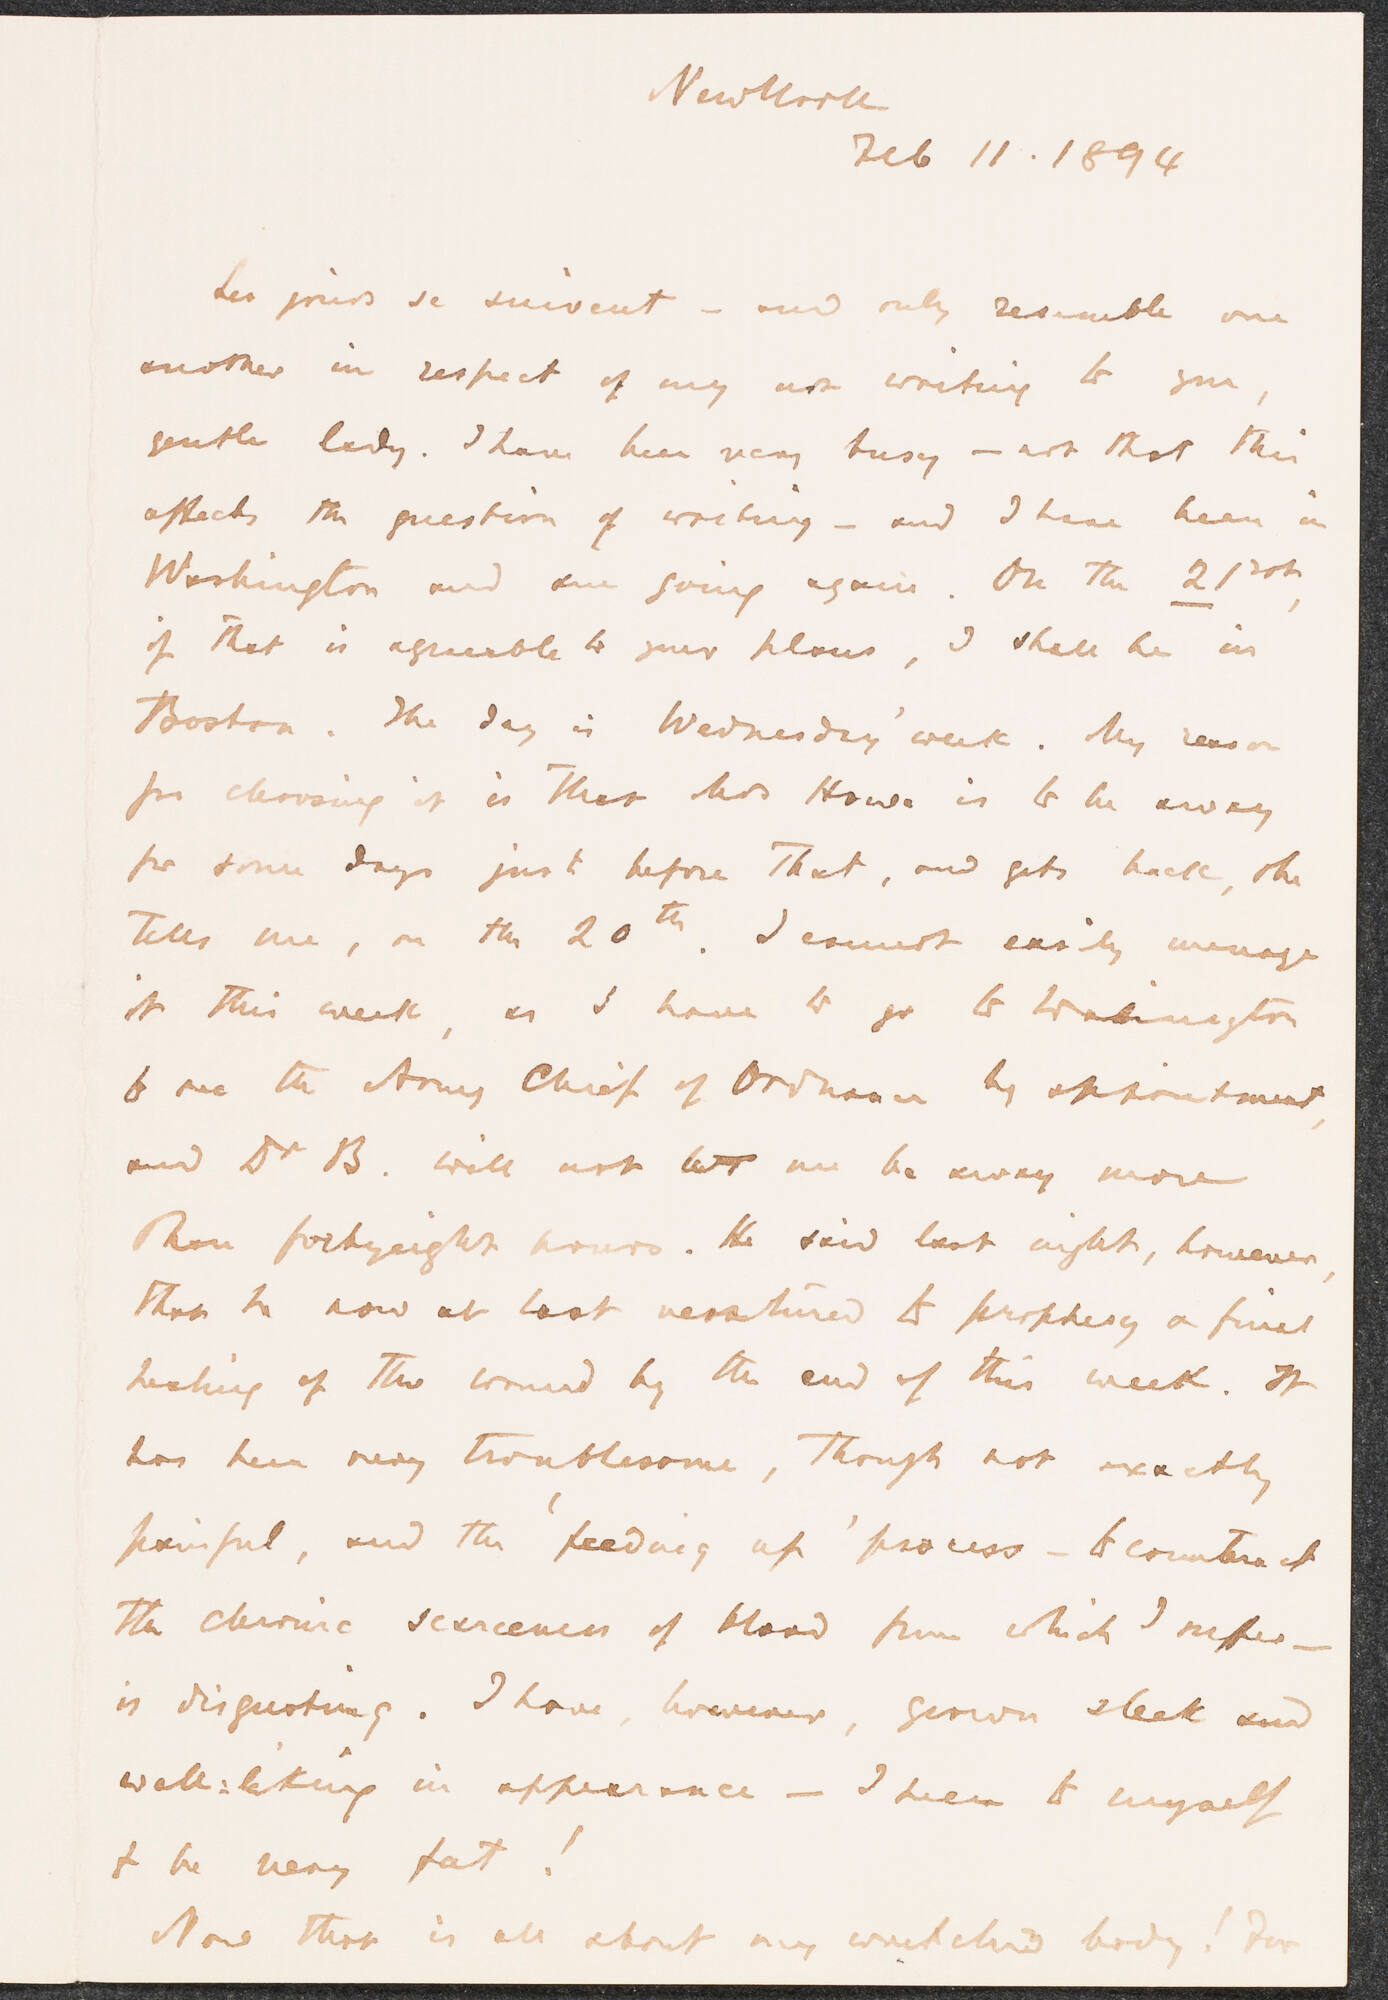 New York
Feb 11. 1894
Les jours se suivent – and only resemble one
another in respect of my not writing to you,
gentle lady. I have been very busy – not that this
affects the question of writing – and I have been in
Washington and am going again. On the 21st,
if that is agreeable to your plans, I shall be in
Boston. The day is Wednesday' week. My reason
for choosing it is that Mrs Howe is to be away
for some days just before that, and gets back, she
tells me, on the 20th. I cannot easily manage
it this week, as I have to go to Washington
to see the Army Chief of Ordnance by appointment,
and Dr B. will not let me be away more
than fortyeight hours. He said last night, however,
that he now at last ventured to prophesy a final
healing of the wound by the end of this week. It
has been very troublesome, though not exactly
painful, and the 'feeding up' process – to counteract
the chronic scarceness of blood from which I suffer –
is disgusting. I have, however, grown sleek and
well-liking in appearance – I seem to myself
to be very fat!
Now that is all about my wretched body! For